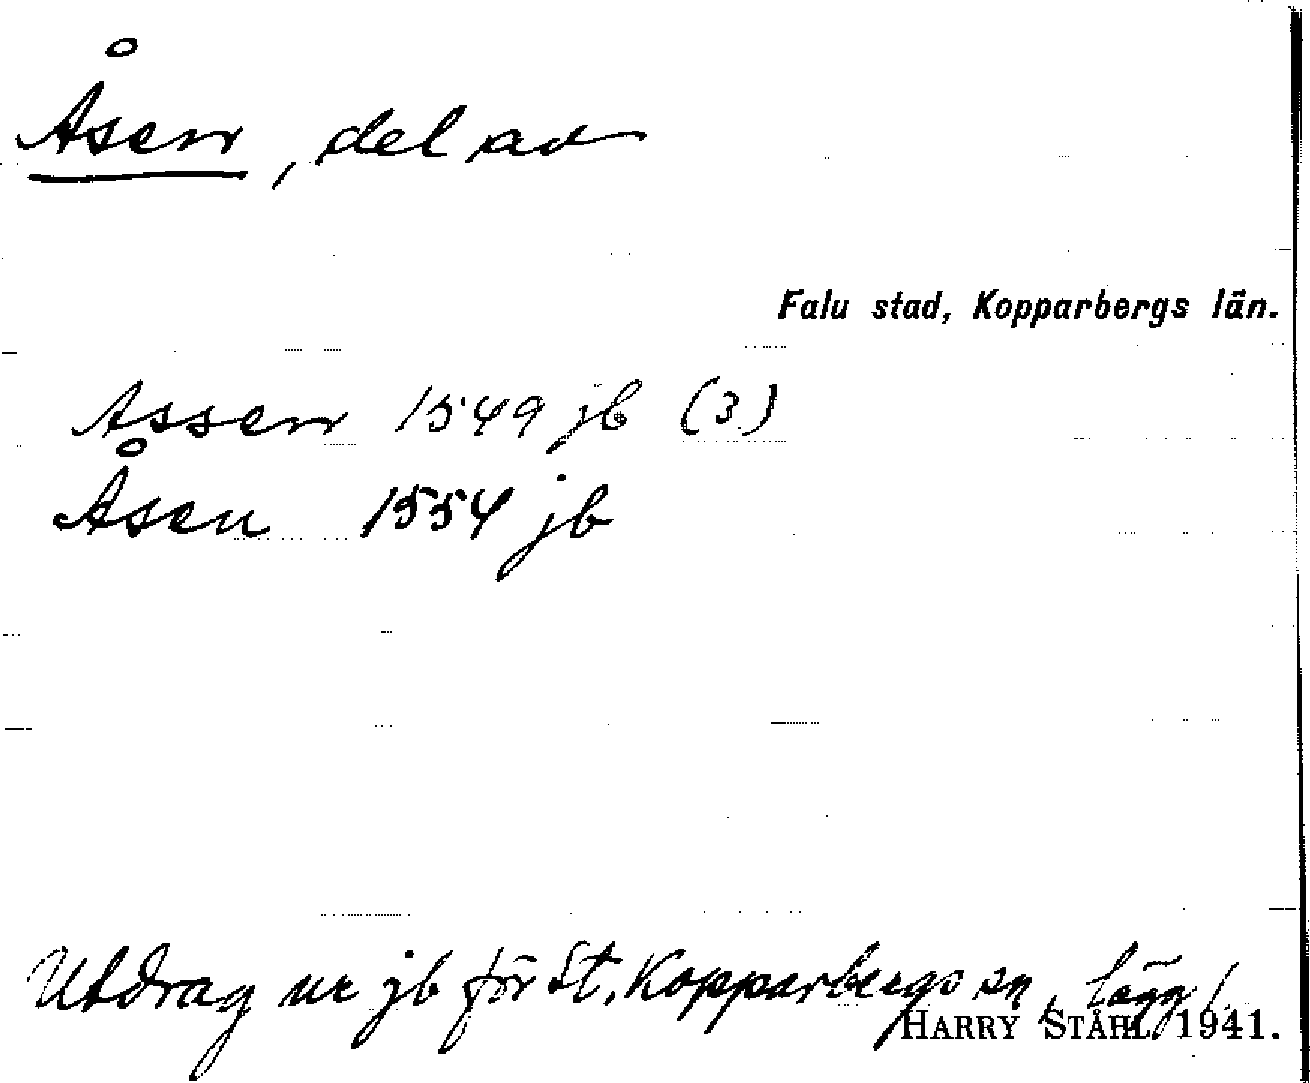 Åsen, del av
Falu stad, Kopparbergs län.
Assen 1549 jb (3)
Åsen 1554 jb
Utdrag ur jb för St. Kopparbergs sn, lägg 1.
HARRY STÅHL 1941.